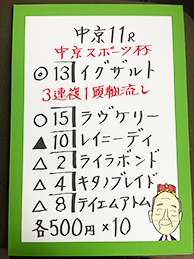 中京11R
中京スポーツ杯
◎13イグザルト
3連複1頭軸流し
○15ラヴケリー
▲10レイニーデイ
△2ライラボンド
△4キタノブレイド
△8テイエムアトム
各500円×10